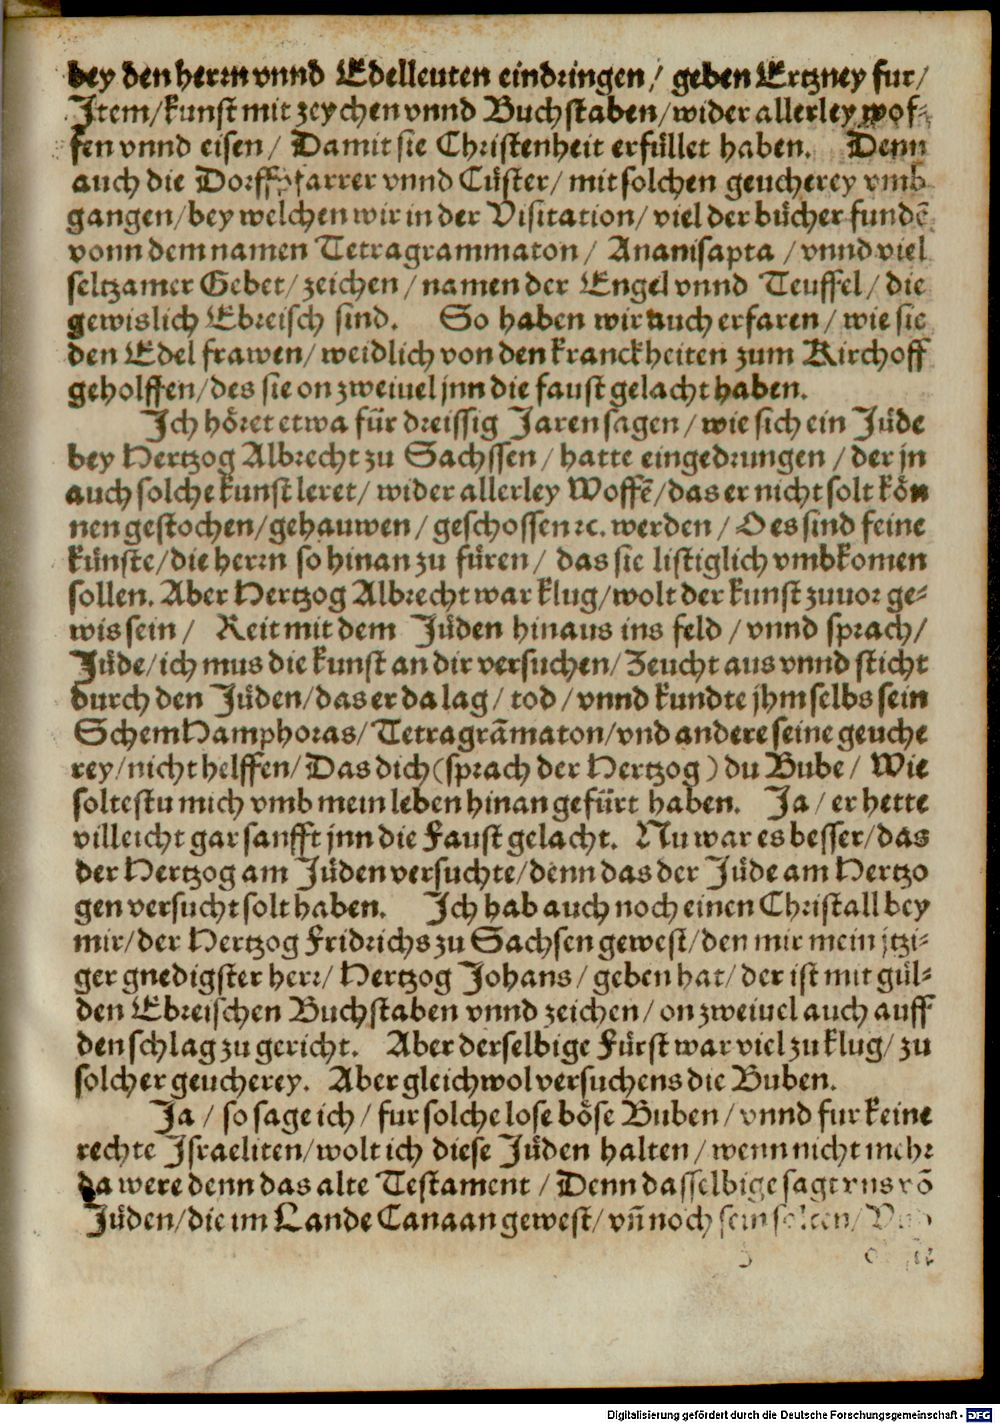 bey den herrn vnnd Edelleuten eindringen/ geben Ertzney fur/
Jtem/kunst mit zeychen vnnd Buchstaben/wider allerley wof⸗
fen vnnd eisen/ Damit sie Christenheit erfüllet haben. Denn
auch die Dorffpfarrer vnnd Cüster/ mit solchen geucherey vmb
gangen/bey welchen wir in der Visitation/ viel der bücher fundē
vonn dem namen Tetragrammaton/ Ananisapta /vnnd viel
seltzamer Gebet/ zeichen/namen der Engel vnnd Teuffel/ die
gewislich Ebreisch sind. So haben wir auch erfaren/ wie sie
den Edel frawen/ weidlich von den kranckheiten zum Kirchoff
geholffen/des sie on zweiuel jnn die faust gelacht haben.
Jch höret etwa für dreissig Jaren sagen/wie sich ein Jüde
bey Hertzog Albrecht zu Sachssen/ hatte eingedrungen/der jn
auch solche kunst leret/wider allerley Woffē/das er nicht solt kön
nen gestochen/gehauwen/ geschossen ꝛc. werden/ O es sind feine
künste/die herrn so hinan zu füren/ das sie listiglich vmbkomen
sollen. Aber Hertzog Albrecht war klug/wolt der kunst zuuor ge⸗
wis sein/ Reit mit dem Jüden hinaus ins feld/vnnd sprach/
Jüde/ich mus die kunst an dir versuchen/Zeucht aus vnnd sticht
durch den Jüden/das er da lag/ tod/vnnd kundte jhm selbs sein
SchemHamphoras/Tetragrāmaton/vnd andere seine geuche
rey/nicht helffen/Das dich (sprach der Hertzog) du Bube/ Wie
soltestu mich vmb mein leben hinan gefürt haben. Ja/er hette
villeicht gar sanfft jnn die Faust gelacht. Nu war es besser/das
der Hertzog am Jüden versuchte/denn das der Jüde am Hertzo
gen versucht solt haben. Jch hab auch noch einen Christall bey
mir/der Hertzog Fridrichs zu Sachsen gewest/den mir mein jtzi⸗
ger gnedigster herr/Hertzog Johans/geben hat/der ist mit gül⸗
den Ebreischen Buchstaben vnnd zeichen/on zweiuel auch auff
den schlag zu gericht. Aber derselbige Fürst war viel zu klug/ zu
solcher geucherey. Aber gleichwol versuchens die Buben.
Ja/ so sage ich/ fur solche lose böse Buben/vnnd fur keine
rechte Jsraeliten/wolt ich diese Jüden halten/wenn nicht mehr
da were denn das alte Testament/Denn dasselbige sagt vns võ
Jüden/die im Lande Canaan gewest/vñ noch sein solten/
Digitalisierung gefördert durch die Deutsche Forschungsgemeinschaft - DFG